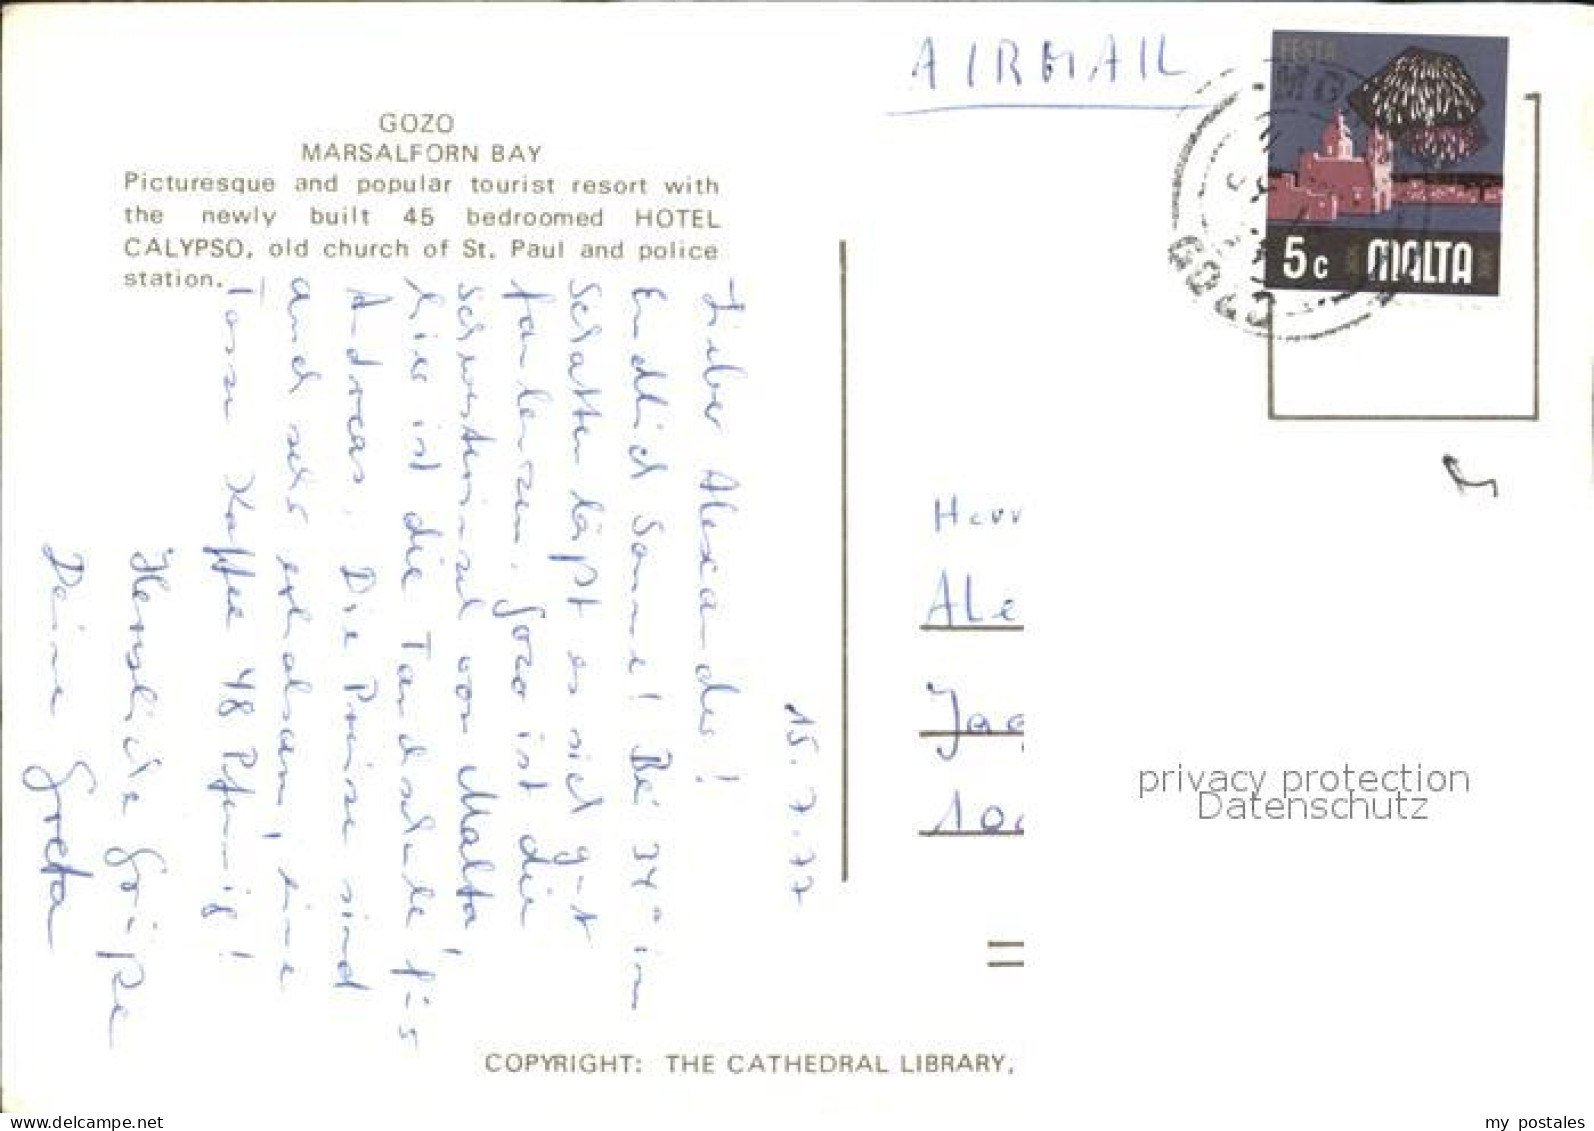 AIRMAIL
GOZO
MARSALFORN BAY
Picturesque and popular tourist resort with
the newly built 45 bedroomed HOTEL
CALYPSO, old church of St. Paul and police
station.
FESTA
5c MALTA
MG
GOZO
15.7.77
Lieber Alexander!
Endlich Sonne! Bei 34° im
Schatten läßt es sich gut
faulenzen. Gozo ist die
Schwesterinsel von Malta,
hier ist die Tauchschule für
Andreas. Die Preise sind
auch sehr erholsam, eine
Tasse Kaffee 48 Pfennig!
Herzliche Grüße
Deine Greta
Herr
Ale
Jag
100
privacy protection
Datenschutz
COPYRIGHT: THE CATHEDRAL LIBRARY,
www.delcampe.net
my_postales